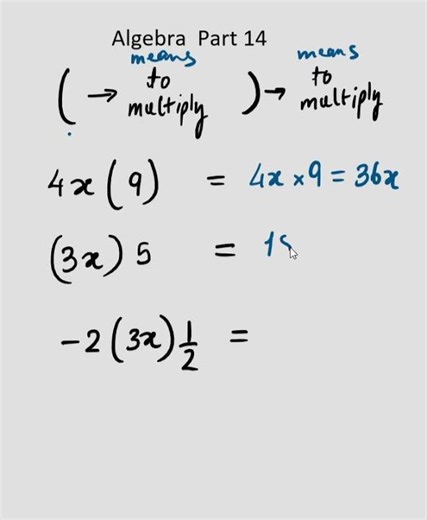 Algebra Part 14
means means
( → to multiply ) → to multiply
4x (9) = 4x × 9 = 36x
(3x) 5 = 15
-2 (3x) 1/2 =